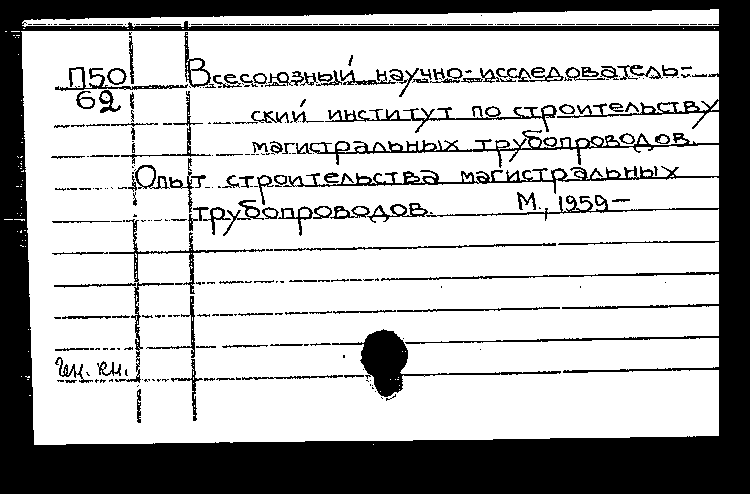 П50 Всесоюзный научно-исследователь-
62
ский институт по строительству
магистральных трубопроводов.
Опыт строительства магистральных
трубопроводов. М., 1959—
кн.